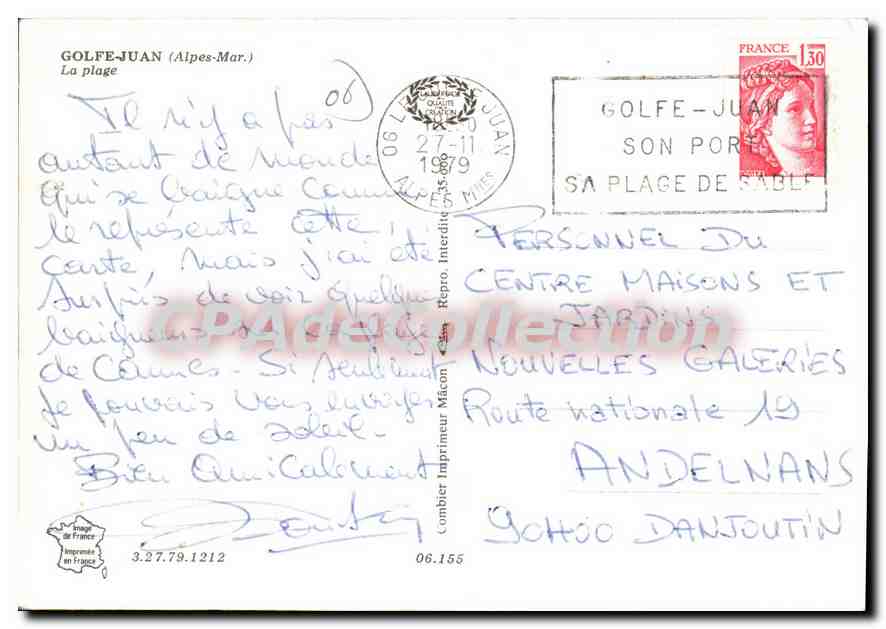 GOLFE-JUAN (Alpes-Mar.)
La plage
06
Il n'y a pas
autant de monde
qui se baigne comme
le représente cette
carte, mais j'ai été
surpris de voir quelques
baigneurs sur les plages
de Cannes - Si seulement
je pouvais vous envoyer
un peu de soleil -
Bien Amicalement
Image
de France
Imprimée
en France
3.27.79.1212
06.155
Combier Imprimeur Mâcon
Repro. Interdite
35.000
QUALITÉ
CRÉATION
06 LE GOLFE JUAN
27-11
1979
ALPES Mmes
GOLFE-JUAN
SON PORT
SA PLAGE DE SABLE
FRANCE
1,30
PERSONNEL DU
CENTRE MAISONS ET
JARDINS
NOUVELLES GALERIES
Route nationale 19
ANDELNANS
90400 DANJOUTIN
CPAdeCollection